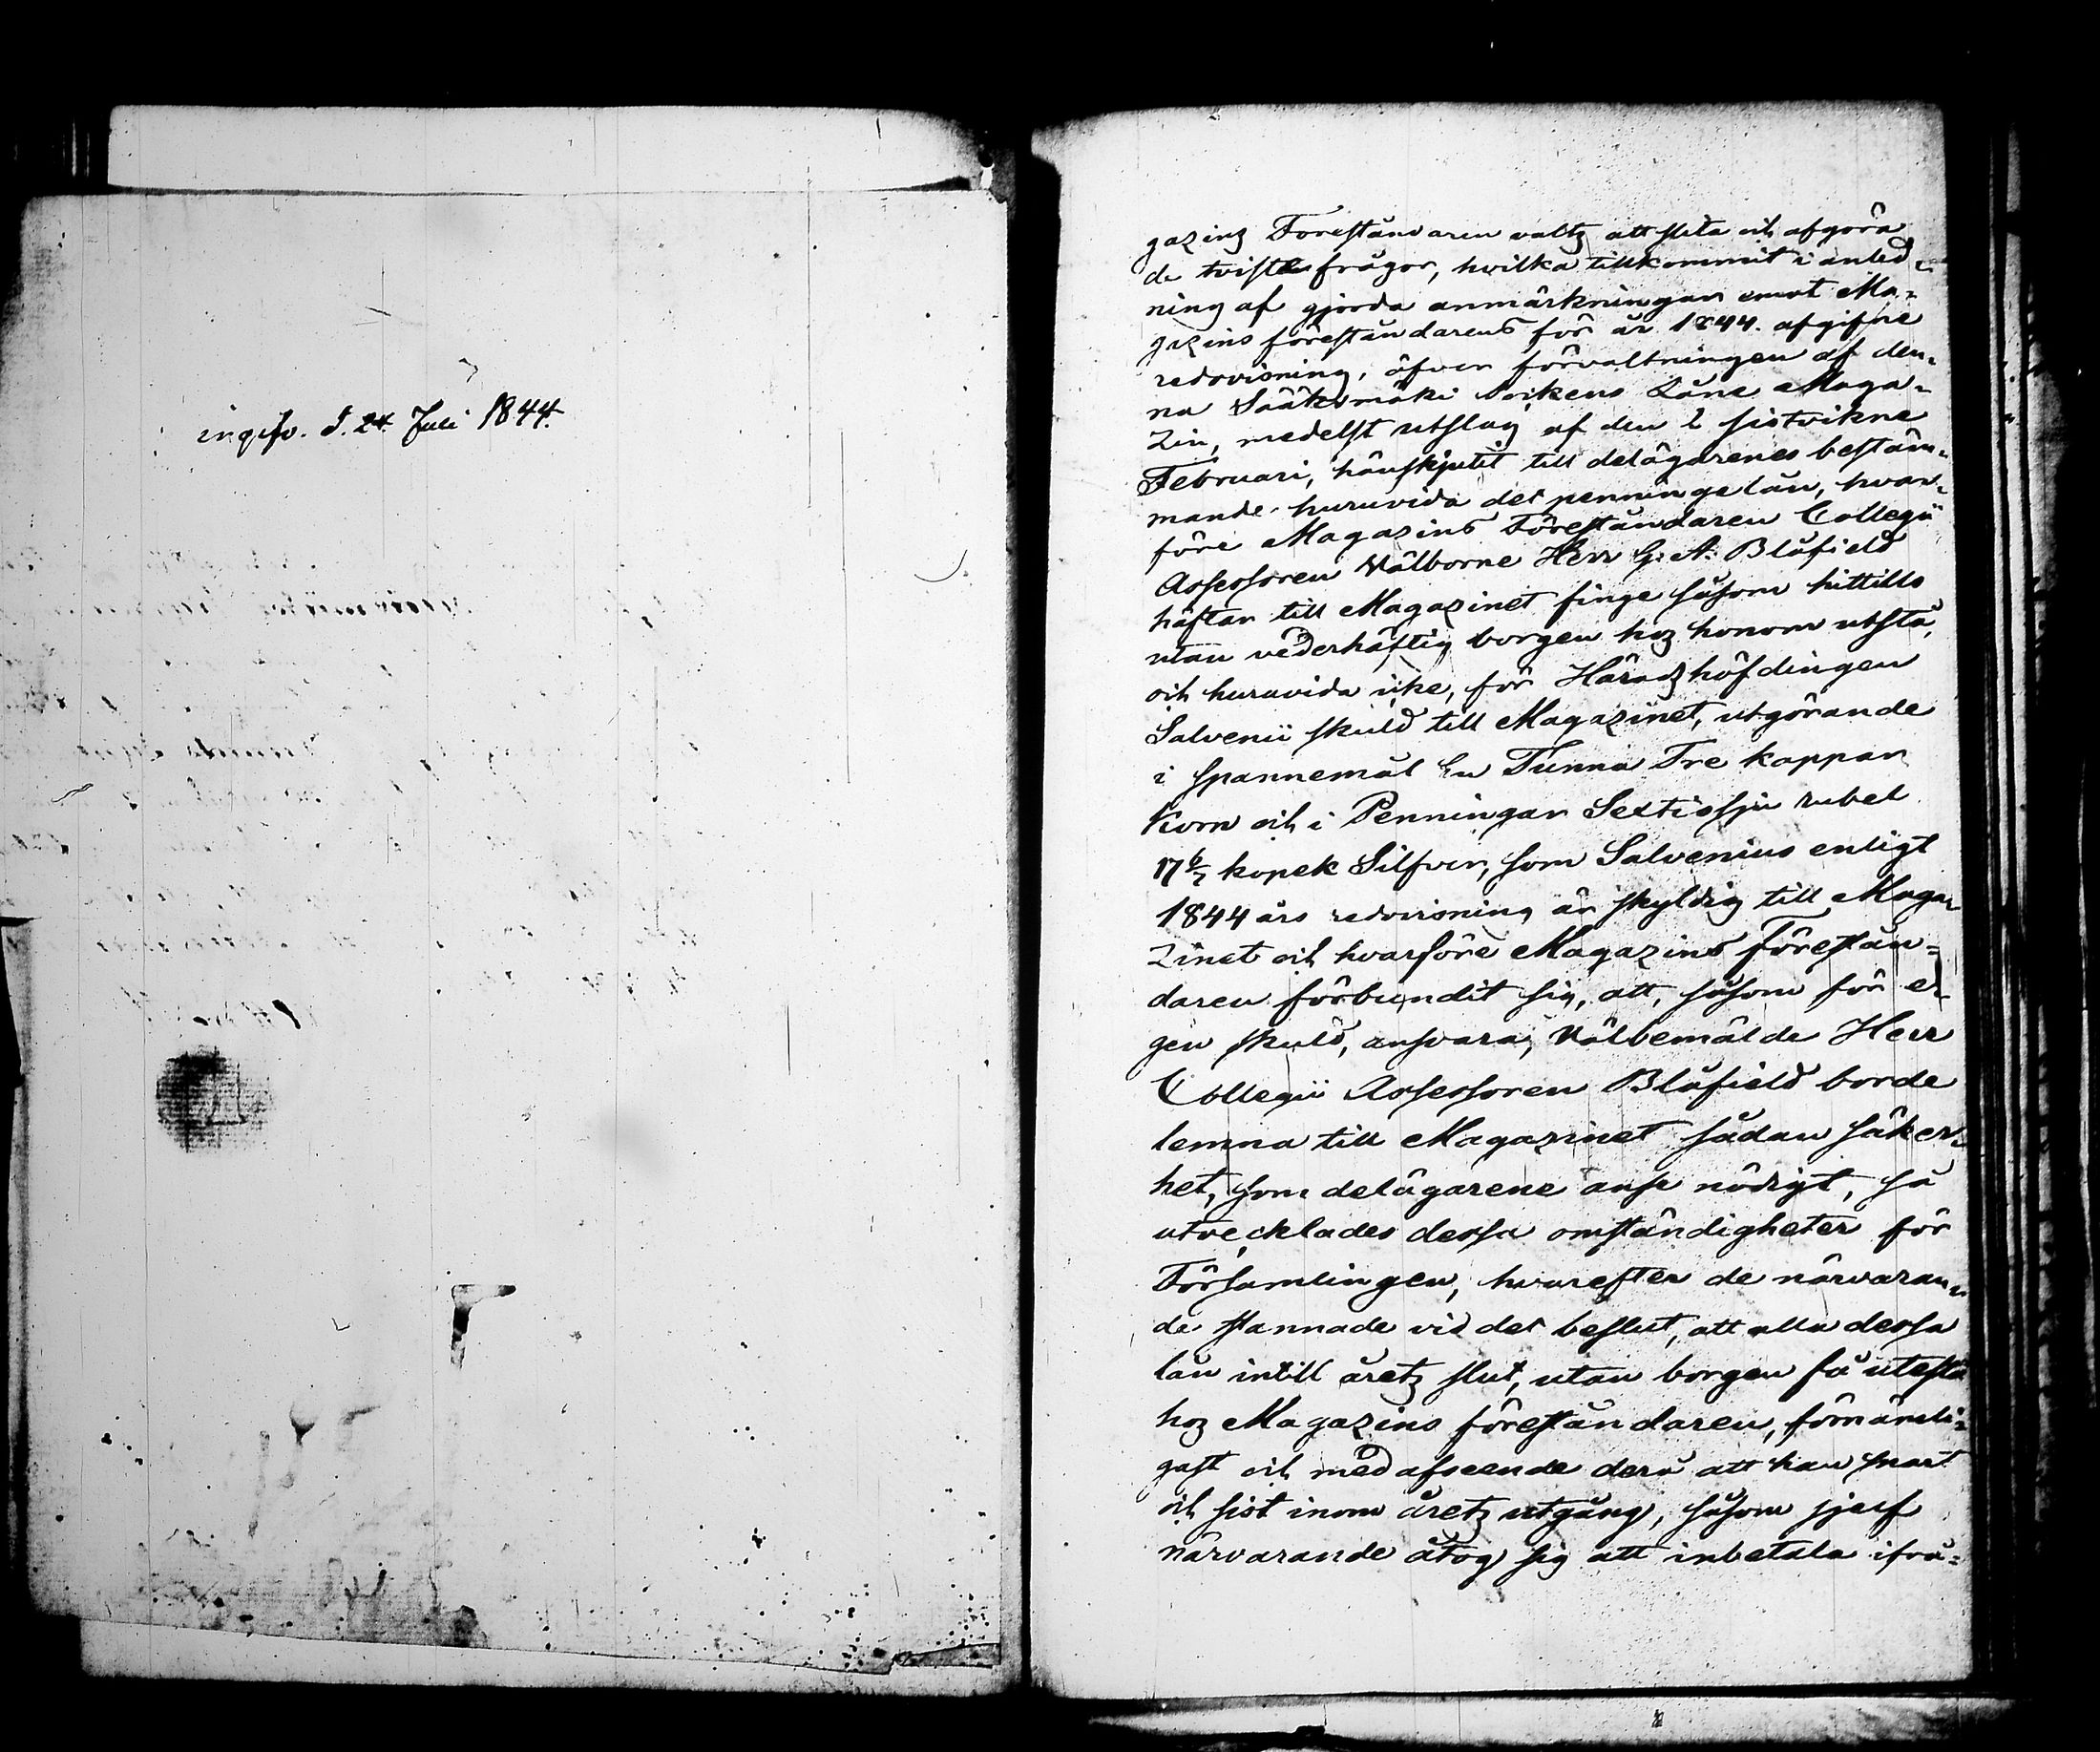 ingifv. d. 24 Juli 1844.
gazins Föreståndaren valts att slita och afgöra
de tvistefrågor, hvilka tillkommit i anled-
ning af gjorda anmärkningar emot Ma-
gazins föreståndarens för år 1844. afgifne
redovisning, öfver förvaltningen af den-
na Sääksmäki Sockens Låne Maga-
zin, medelst utslag af den 2 sistvikne
Februari, hänskjutit till delägarenes bestäm-
mande huruvida det penningelån, hvar-
före Magazins Föreståndaren Collegii
Assessoren Välborne Herr G. A. Blåfield
häftar till Magazinet finge såsom hittills
utan vederhäftig borgen hoz honom utstå,
och huruvida icke, för Häradshöfdingen
Salvenii skuld till Magazinet, utgörande
i spannemål En Tunna Tre kappar
Korn och i Penningar Sextiosju rubel
17 6/7 kopek Silfver, som Salvenius enligt
1844 års redovisning är skyldig till Maga-
zinet och hvarföre Magazins Förestån-
daren förbundit sig, att, såsom för e-
gen skuld, ansvara, Välbemälde Herr
Collegii Assessoren Blåfield borde
lemna till Magazinet sådan säker-
het, som delägarene anse nödigt, så
utvecklades dessa omständigheter för
Församlingen, hvarefter de närvaran-
de stannade vid det beslut, att alla dessa
lån intill årets slut, utan borgen få utestå
hoz Magazins föreståndaren, förnämli-
gast och med afseende derå att han snart
och sist inom årets utgång, såsom sjelf
närvarande åtog sig att inbetala ifrå-